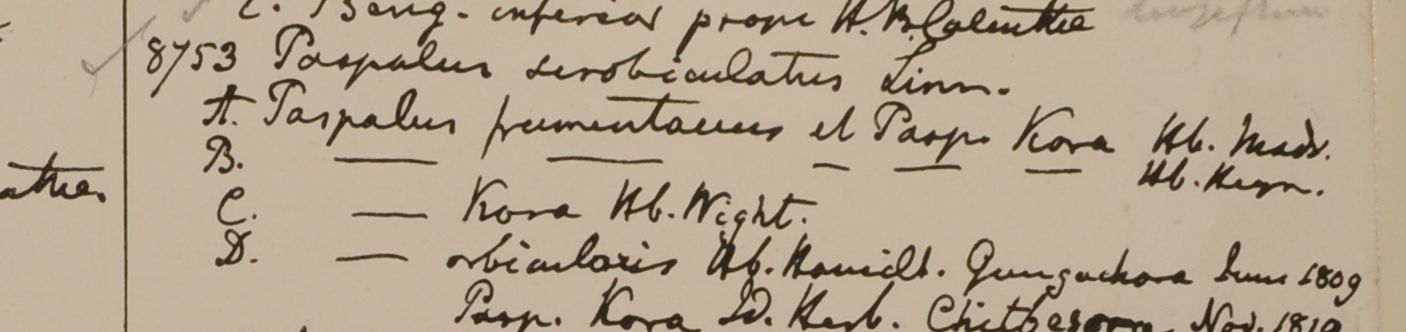 E. Beng. inferior prope H.B. Calcuttae
8753 Paspalus scrobiculatus Linn.
A. Paspalus frumentaceus et Pasp. Kora Hb. Madr.
B. — — — — — Hb. Heyn.
C. — Kora Hb. Wight.
D. — orbicularis Hb. Hamilt. Gungachora Juni 1809
Pasp. Kora Id. Herb. Nov. 1810